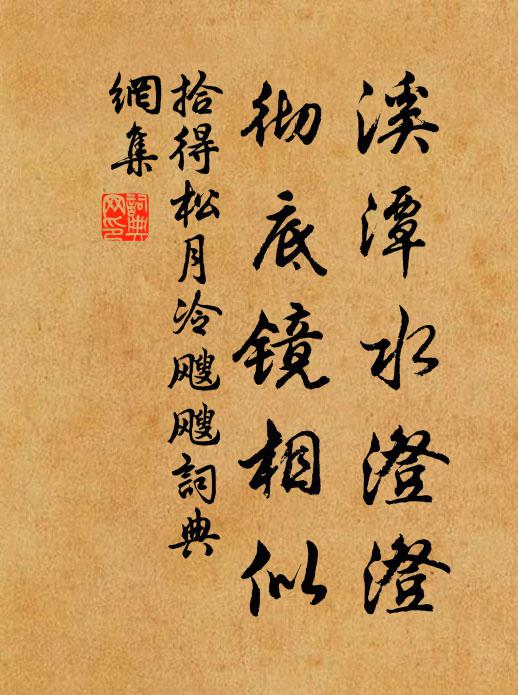 溪潭水澄澄
彻底镜相似
拾得松月冷飕飕詞典
網集
詞典
网印